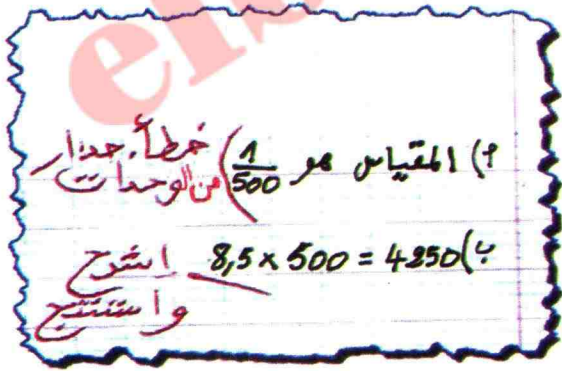 أ) المقياس هو 1/500 خطأ. حذار
من الوحدات
ب) 8,5 x 500 = 4250 اشرح
واستنتج